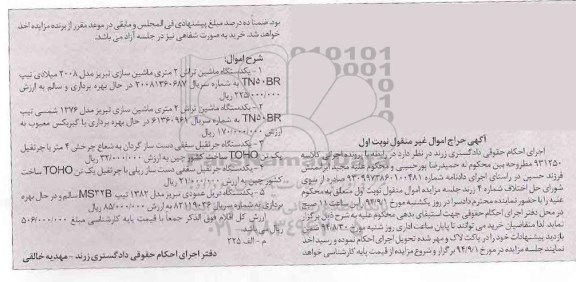 آگهی حراج اموال غیر منقول نوبت اول
اجرای احکام حقوقی دادگستری زرند در نظر دارد در رابطه با پرونده اجرایی کلاسه
۹۳۱۲۵۰ مطروحه بین محکوم له حمیدرضا پورحسینی و محکوم علیه مجید ابراهیمی
فرزند حسین در راستای اجرای دادنامه شماره ۹۳۰۹۹۷۳۸۶۰۱۰۰۴۸۱ صادره از سوی
شورای حل اختلاف شماره ۴ زرند جلسه مزایده اموال منقول نوبت اول متعلق به محکوم
علیه را با حضور نماینده محترم دادسرا در روز یکشنبه مورخ ۹۴/۹/۱ راس ساعت ۱۱ صبح
در محل دفتر اجرای احکام حقوقی جهت استیفای بدهی محکوم علیه به شرح ذیل برگزار
نماید لذا متقاضیان خرید می توانند تا پایان ساعت اداری روز شنبه مورخ ۹۴/۸/۳۰ ضمن
بازدید پیشنهادات خود را در پاکت لاک و مهر شده تحویل اجرای احکام نموده و رسید اخذ
نمایند جلسه مزایده در مورخ ۹۴/۹/۱ برگزار و شروع مزایده از قیمت پایه کارشناسی خواهد
بود. ضمنا ده درصد مبلغ پیشنهادی فی المجلس و مابقی در موعد مقرر از برنده مزایده اخذ
خواهد شد. خرید به صورت شفاهی نیز در جلسه آزاد می باشد.
شرح اموال:
۱ - یکدستگاه ماشین تراش ۲ متری ماشین سازی تبریز مدل ۲۰۰۸ میلادی تیپ
TN۵۰BR به شماره سریال ۲۰۰۸۱۳۶۰۶۸۷ در حال بهره برداری و سالم به ارزش
۲۲۵/۰۰۰/۰۰۰ ریال
۲ - یکدستگاه ماشین تراش ۲ متری ماشین سازی تبریز مدل ۱۳۷۶ شمسی تیپ
TN۵۰BR به شماره سریال ۶۱۳۶۰۹۶۱ در حال بهره برداری با گیربکس معیوب به
ارزش ۱۷۰/۰۰۰/۰۰۰ ریال
۳ - یکدستگاه جرثقیل سقفی دست ساز گردان به شعاع چرخش ۴ متر با چرثقیل
یک تن TOHO ساخت کشور چین به ارزش ۳۲/۰۰۰/۰۰۰ ریال
۴ - یکدستگاه جرثقیل سقفی دست ساز ریلی با چرثقیل یک تن TOHO ساخت
کشور چین به ارزش ۲۱/۰۰۰/۰۰۰ ریال
۵ - یکدستگاه دریل عمودی تبریز مدل ۱۳۸۲ تیپ MS۲۲B سالم و در حال بهره
برداری به شماره سریال ۸۲۱۱۹۰۳۶ به ارزش ۸۵/۰۰۰/۰۰۰ ریال
ارزش کل اقلام فوق الذکر جمعا با قیمت پایه کارشناسی مبلغ ۵۰۶/۰۰۰/۰۰۰
ریال می باشد.
م - الف ۲۲۵
دفتر اجرای احکام حقوقی دادگستری زرند - مهدیه خالقی